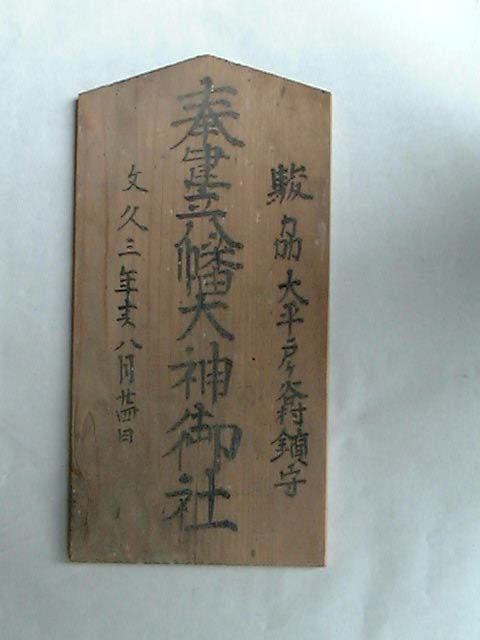 駿刕大平戸ヶ谷村鎮守
奉建立八幡大神御社
文久三年亥八月廿四日